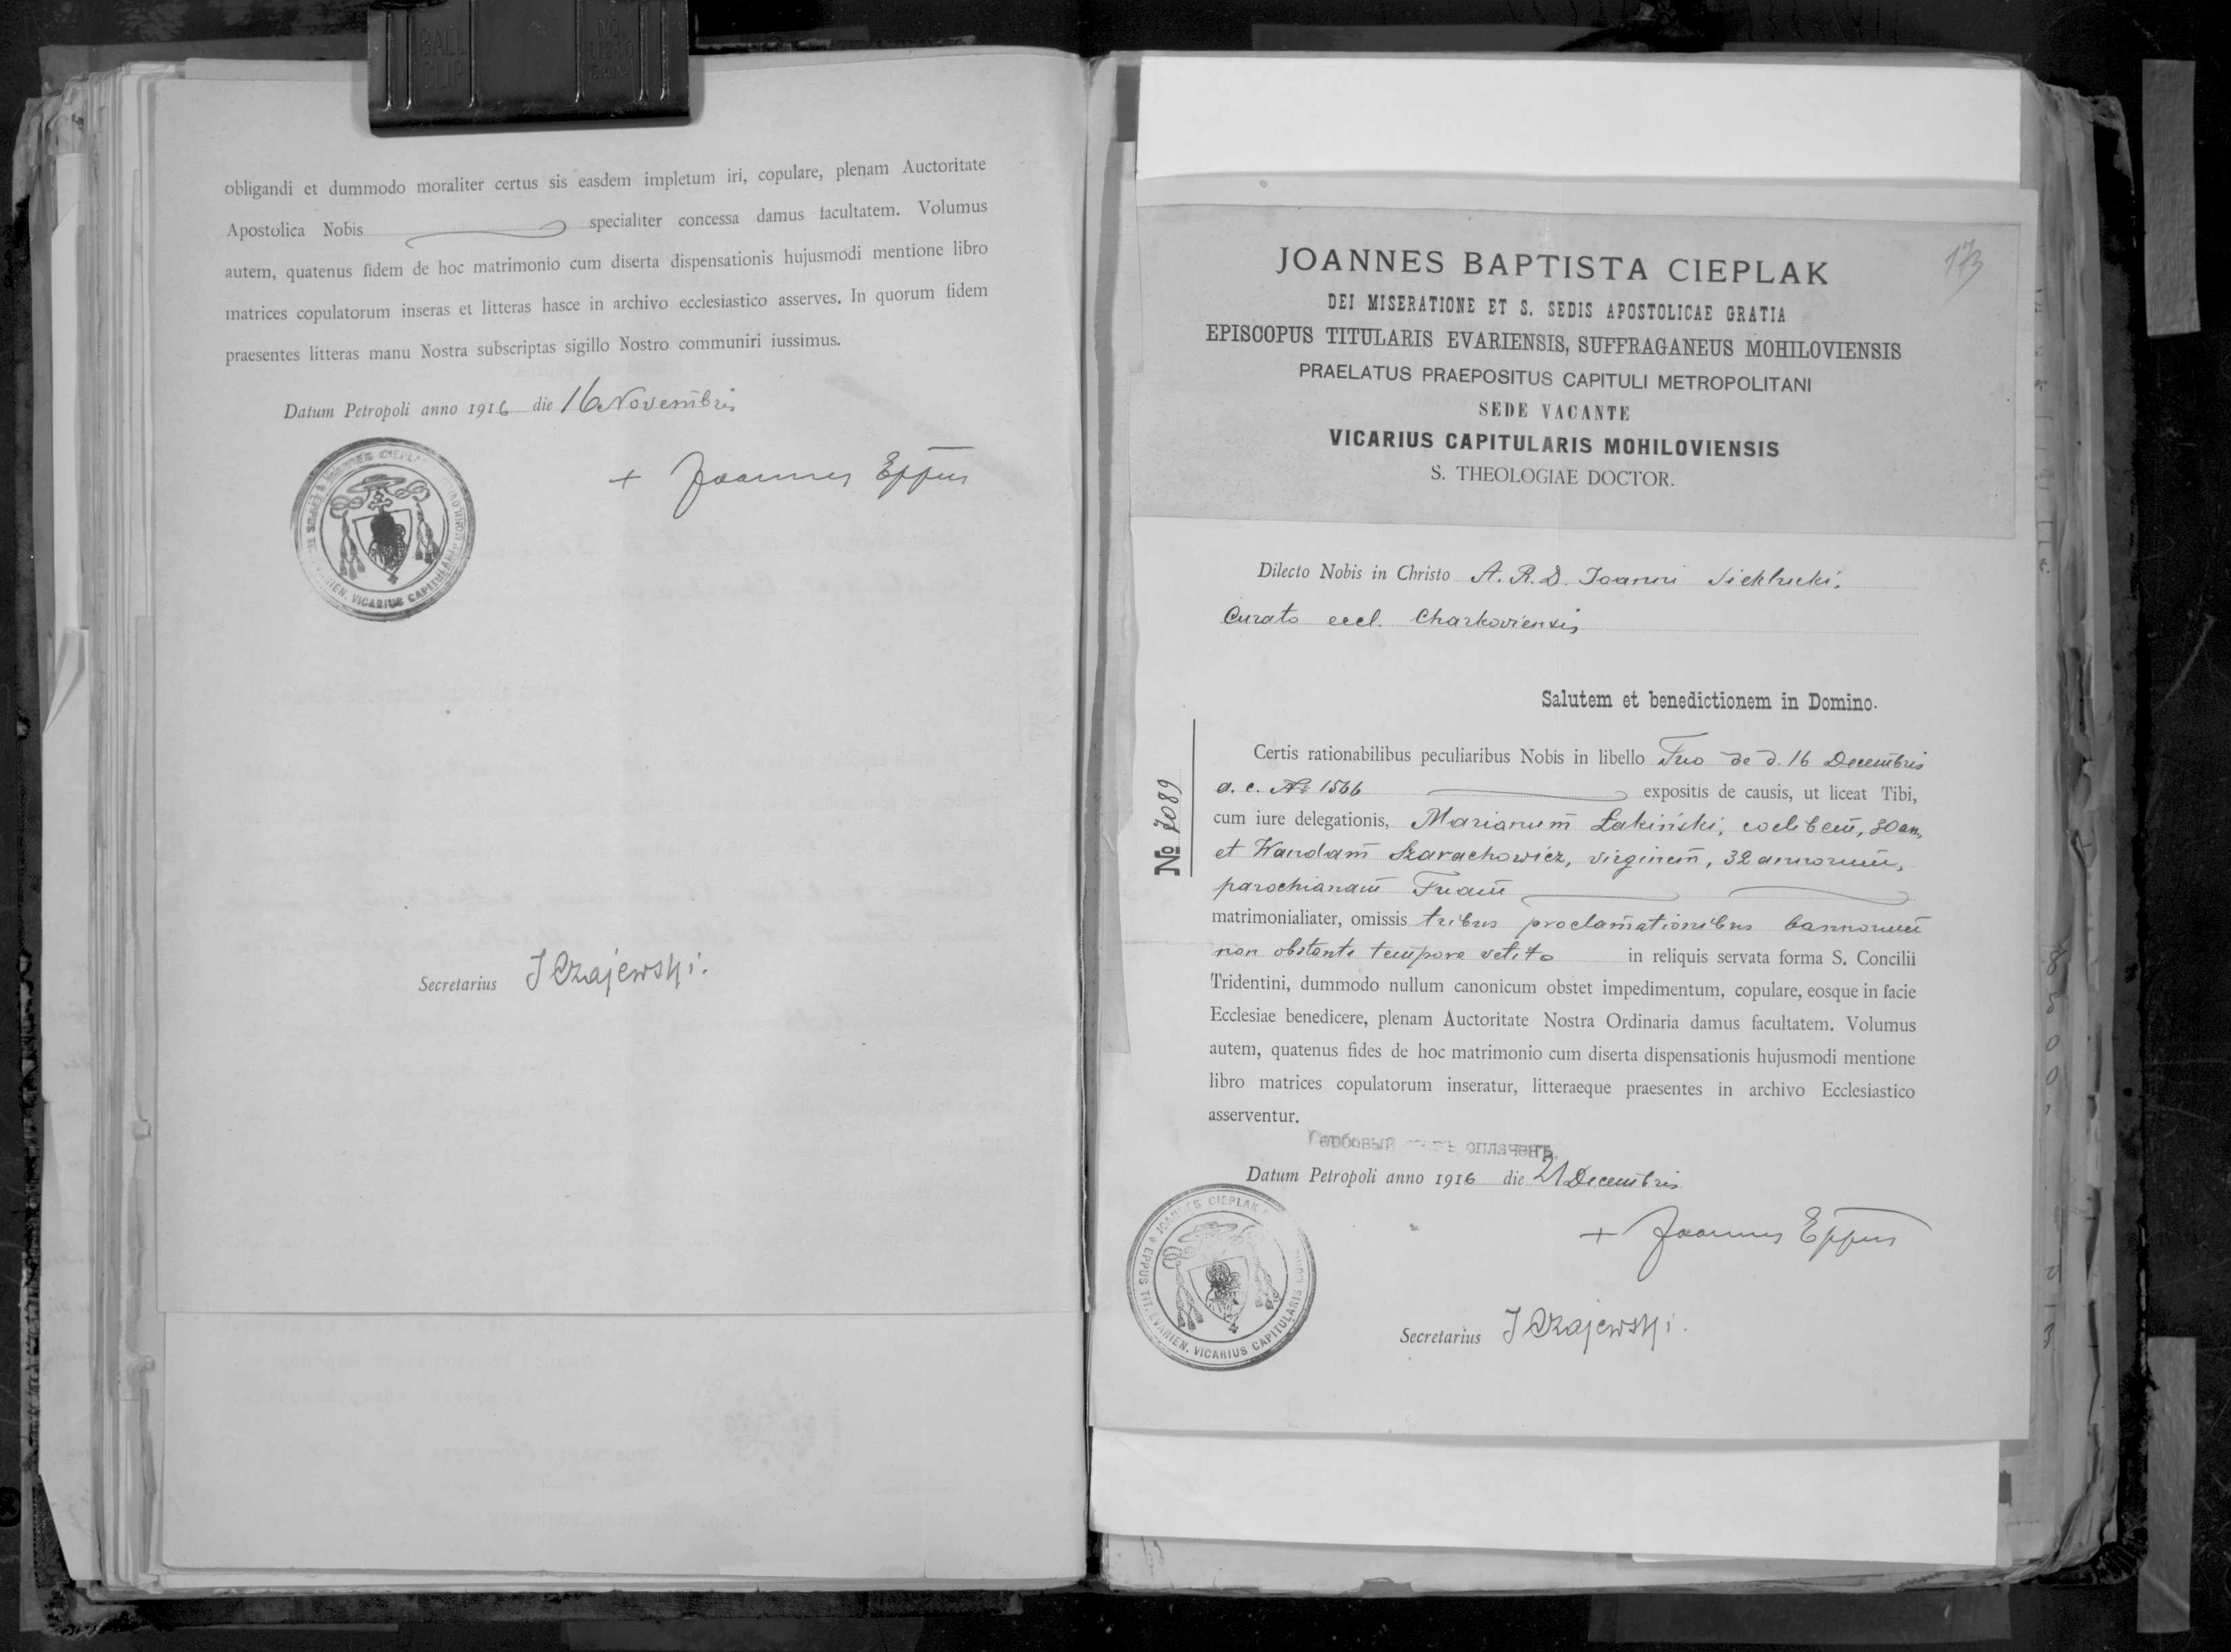 BALL
CLIP
NO.
CHINA
obligandi et dummodo moraliter certus sis easdem impletum iri, copulare, plenam Auctoritate
Apostolica Nobis specialiter concessa damus facultatem. Volumus
autem, quatenus fidem de hoc matrimonio cum diserta dispensationis hujusmodi mentione libro
matrices copulatorum inseras et litteras hasce in archivo ecclesiastico asserves. In quorum fidem
praesentes litteras manu Nostra subscriptas sigillo Nostro communiri iussimus.
Datum Petropoli anno 1916 die 16 Novembris
+ Joannes Eppus
VICARIUS CAPITULARIS
Secretarius J Czajewski.
173
JOANNES BAPTISTA CIEPLAK
DEI MISERATIONE ET S. SEDIS APOSTOLICAE GRATIA
EPISCOPUS TITULARIS EVARIENSIS, SUFFRAGANEUS MOHILOVIENSIS
PRAELATUS PRAEPOSITUS CAPITULI METROPOLITANI
SEDE VACANTE
VICARIUS CAPITULARIS MOHILOVIENSIS
S. THEOLOGIAE DOCTOR.
Dilecto Nobis in Christo A. R. D. Joanni
Curato eccl. Charkoviensis
Salutem et benedictionem in Domino.
№ 7089
Certis rationabilibus peculiaribus Nobis in libello Tuo de d. 16 Decembris
a. c. № 1566 expositis de causis, ut liceat Tibi,
cum iure delegationis, Marianum Łakiński, coelibem, 30 an.
et Wandam Szarachowicz, virginem, 32 annorum,
parochianam Tuam
matrimonialiater, omissis tribus proclamationibus bannorum
non obstante tempore vetito in reliquis servata forma S. Concilii
Tridentini, dummodo nullum canonicum obstet impedimentum, copulare, eosque in facie
Ecclesiae benedicere, plenam Auctoritate Nostra Ordinaria damus facultatem. Volumus
autem, quatenus fides de hoc matrimonio cum diserta dispensationis hujusmodi mentione
libro matrices copulatorum inseratur, litteraeque praesentes in archivo Ecclesiastico
asserventur.
Гербовый оплаченъ.
Datum Petropoli anno 1916 die 21 Decembris
+ Joannes Eppus
JOANNES CIEPLAK EPPUS TIT. EVARIEN. VICARIUS CAPITULARIS
Secretarius J Czajewski.